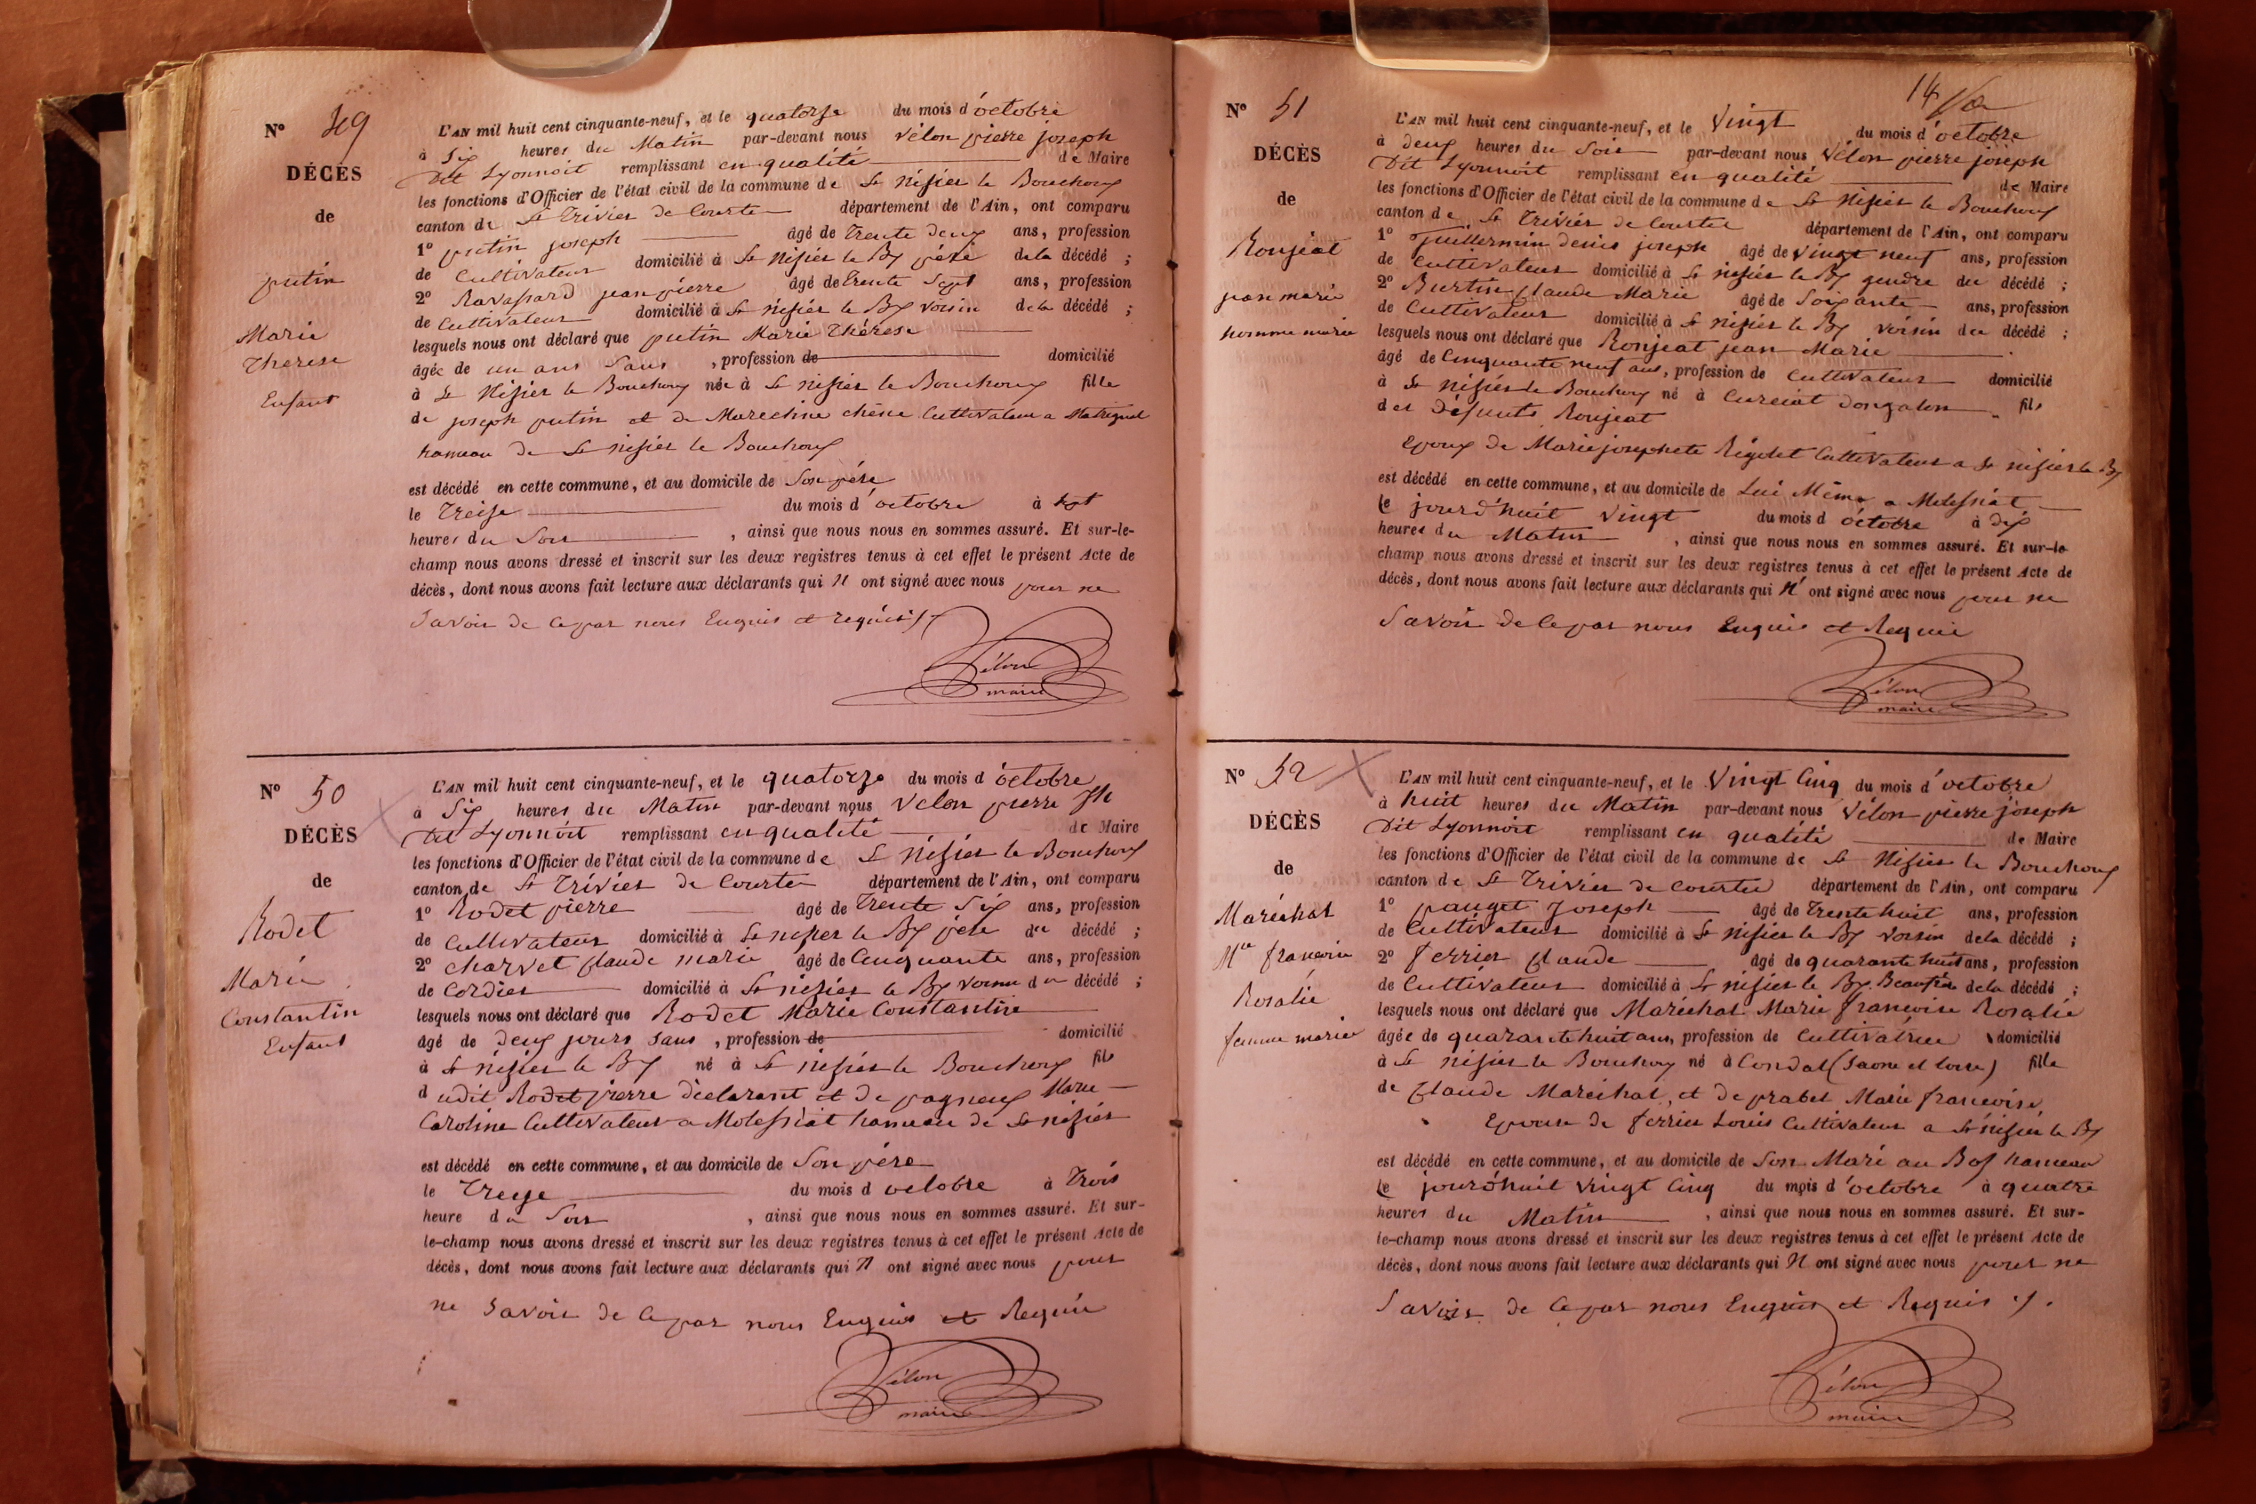 N° 49
DÉCÈS
de
putin
Marie
Thérèse
Enfant
L'AN mil huit cent cinquante-neuf, et le quatorze du mois d'octobre
à Six heures du Matin par-devant nous Vélon pierre joseph
Dit Lyonnoit remplissant en qualité de Maire
les fonctions d'Officier de l'état civil de la commune de St Nisier le Bouchoux
canton de St Trivier de Courte département de l'Ain, ont comparu
1° putin joseph âgé de Trente deux ans, profession
de Cultivateur domicilié à St Nisier le Bx père de la décédé ;
2° Ravassard jean pierre âgé de Trente Sept ans, profession
de Cultivateur domicilié à St Nisier le Bx Voisin de la décédé ;
lesquels nous ont déclaré que putin Marie Thérèse
âgée de un ans Sans , profession de domicilié
à St Nisier le Bouchoux née à St Nisier le Bouchoux fille
de joseph putin et de chêne Cultivateur a
hameau de St Nisier le Bouchoux
est décédé en cette commune, et au domicile de Son père
le Treise du mois d'octobre à Sept
heures du Soir , ainsi que nous nous en sommes assuré. Et sur-le-
champ nous avons dressé et inscrit sur les deux registres tenus à cet effet le présent Acte de
décès, dont nous avons fait lecture aux déclarants qui N ont signé avec nous pour ne
Savoir de Ce par nous Enquis et requis
Vélon
maire
N° 50
DÉCÈS
de
Rodet
Marie
Constantin
Enfant
L'AN mil huit cent cinquante-neuf, et le quatorze du mois d'octobre
à Six heures du Matin par-devant nous Vélon pierre Jh
Dit Lyonnoit remplissant en qualité de Maire
les fonctions d'Officier de l'état civil de la commune de St Nisier le Bouchoux
canton de St Trivier de Courte département de l'Ain, ont comparu
1° Rodet pierre âgé de Trente Six ans, profession
de Cultivateur domicilié à St nisier le Bx père du décédé ;
2° Charvet Claude marie âgé de Cinquante ans, profession
de Cordier domicilié à St nisier le Bx Voisin du décédé ;
lesquels nous ont déclaré que Rodet Marie Constantin
âgé de deux jours Sans , profession de domicilié
à St nisier le Bx né à St nisier le Bouchoux fils
dudit Rodet pierre déclarant et de pagneux Marie
Caroline Cultivateur a Molessiat hameau de St nisier
est décédé en cette commune, et au domicile de Son père
le Treize du mois d octobre à Trois
heure du Soir , ainsi que nous nous en sommes assuré. Et sur-
le-champ nous avons dressé et inscrit sur les deux registres tenus à cet effet le présent Acte de
décès, dont nous avons fait lecture aux déclarants qui N ont signé avec nous pour
ne Savoir de Ce par nous Enquis et Requis
Vélon
maire
14
N° 51
DÉCÈS
de
Ronjeat
jean marie
homme marie
L'AN mil huit cent cinquante-neuf, et le Vingt du mois d'octobre
à deux heures du Soir par-devant nous Vélon pierre joseph
Dit Lyonnoit remplissant en qualité de Maire
les fonctions d'Officier de l'état civil de la commune de St Nisier le Bouchoux
canton de St Trivier de Courte département de l'Ain, ont comparu
1° Guillermin denis joseph âgé de Vingt neuf ans, profession
de Cultivateur domicilié à St nisier le Bx gendre du décédé ;
2° Burtin Claude Marie âgé de Soixante ans, profession
de Cultivateur domicilié à St nisier le Bx Voisin du décédé ;
lesquels nous ont déclaré que Ronjeat jean Marie
âgé de Cinquante neuf ans, profession de Cultivateur domicilié
à St nisier le Bouchoux né à Curciat dongalon fils
des Défunts Ronjeat
Epoux de Marie josephete Rigolet Cultivateur a St nisier le Bx
est décédé en cette commune, et au domicile de Lui Même a Molessiat
Le jourd'huit Vingt du mois d octobre à dix
heures du Matin , ainsi que nous nous en sommes assuré. Et sur-le-
champ nous avons dressé et inscrit sur les deux registres tenus à cet effet le présent Acte de
décès, dont nous avons fait lecture aux déclarants qui N' ont signé avec nous pour ne
Savoir de Ce par nous Enquis et Requis
Vélon
maire
N° 52
DÉCÈS
de
Maréchal
Mie francoise
Rosalie
femme marie
L'AN mil huit cent cinquante-neuf, et le Vingt Cinq du mois d'octobre
à huit heures du Matin par-devant nous Vélon pierre joseph
Dit Lyonnoit remplissant en qualité de Maire
les fonctions d'Officier de l'état civil de la commune de St Nisier le Bouchoux
canton de St Trivier de Courte département de l'Ain, ont comparu
1° pauget Joseph âgé de Trente huit ans, profession
de Cultivateur domicilié à St nisier le Bx Voisin de la décédé ;
2° ferrier Claude âgé de quarante huit ans, profession
de Cultivateur domicilié à St nisier le Bx Beaufrère de la décédé ;
lesquels nous ont déclaré que Maréchal Marie francoise Rosalie
âgée de quarante huit ans, profession de Cultivatrice domicilié
à St nisier le Bouchoux né à Condal (Saone et loire) fille
de Claude Maréchal, et de prabel Marie francoise
Epouse de ferrier Louis Cultivateur a St nisier le Bx
est décédé en cette commune, et au domicile de Son Mari au Bos hameau
Le jourd'huit Vingt Cinq du mois d'octobre à quatre
heures du Matin , ainsi que nous nous en sommes assuré. Et sur-
le-champ nous avons dressé et inscrit sur les deux registres tenus à cet effet le présent Acte de
décès, dont nous avons fait lecture aux déclarants qui N ont signé avec nous pour ne
Savoir de Ce par nous Enquis et Requis
Vélon
maire